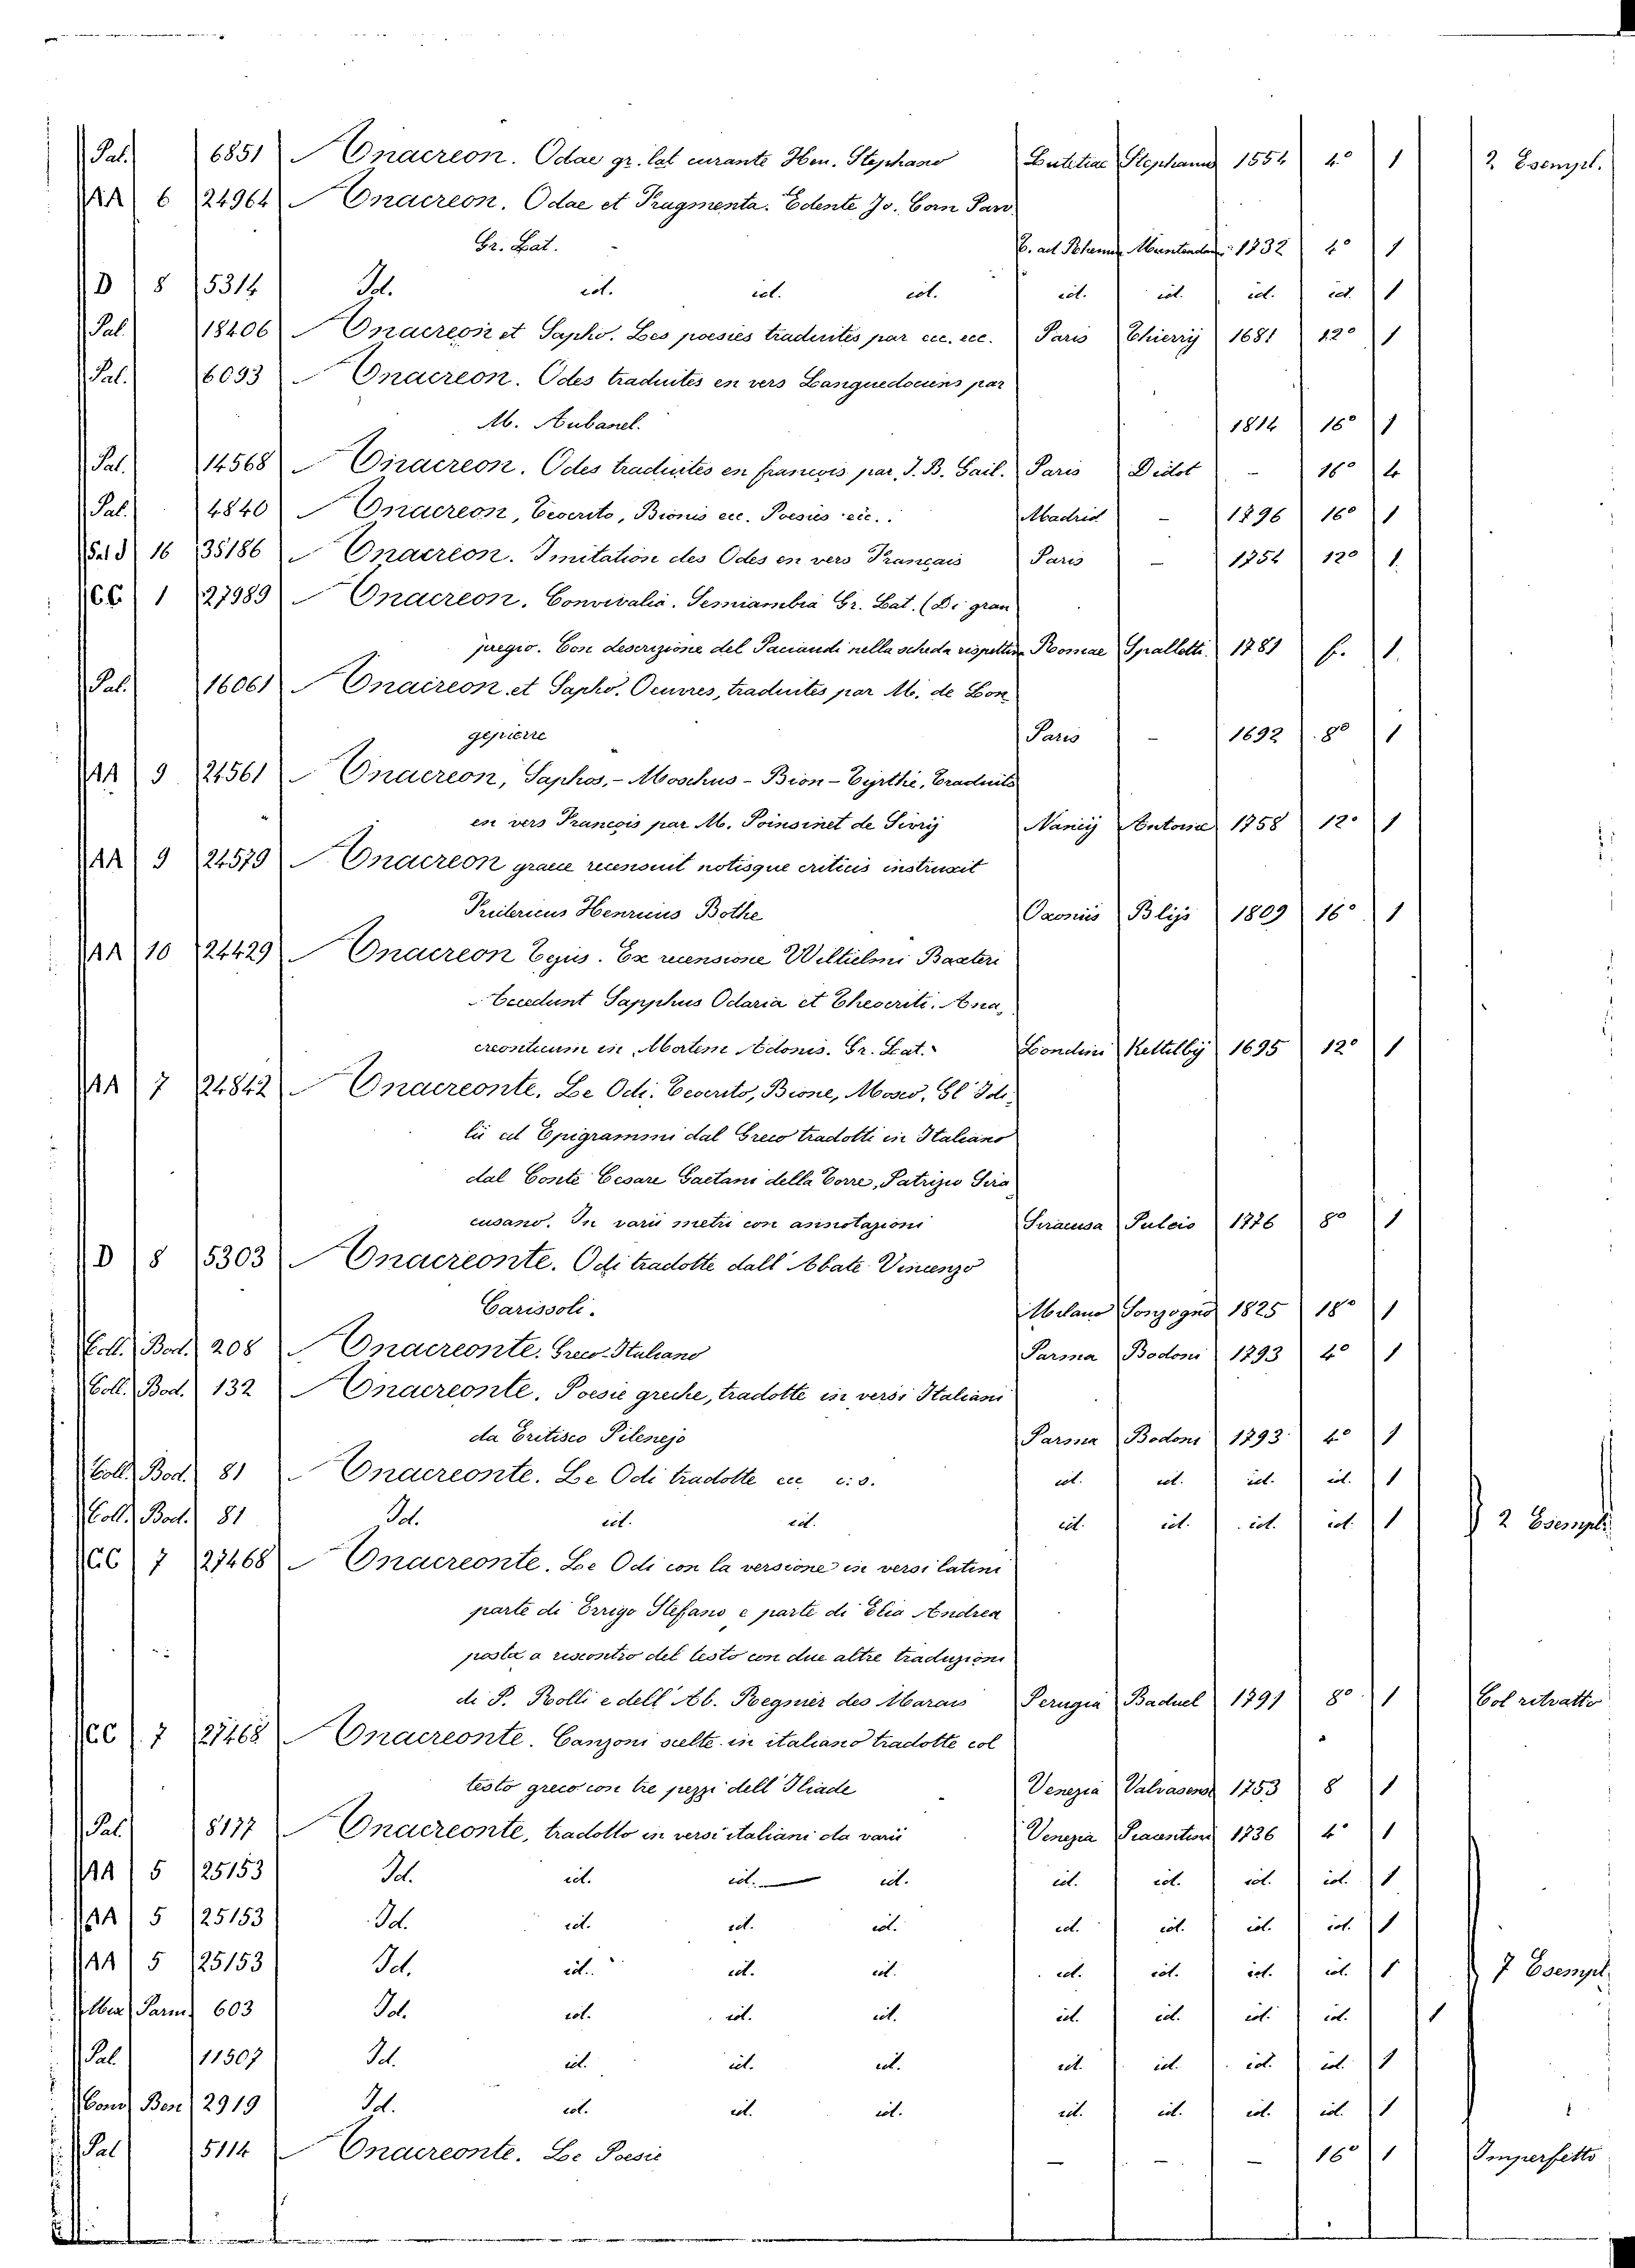 Pal. 6851 Anacreon. Odae gr. lat curante Hen. Stephano Lutetiae Stephanus 1554 4.° 1 2 Esempl.
AA 6 24964 Anacreon. Odae et Fragmenta. Edente Jo. Corn Pavv
Gr. Lat. 1732 4° 1
D 8 5314 Id. id. id. id. id. id. id. id. 1
Pal. 18406 Anacreon et Sapho. Les poesies traduites par ecc. ecc. Paris Thierry 1681 12° 1
Pal. 6093 Anacreon. Odes traduites en vers Languedociens par
M. Aubanel. 1814 16° 1
Pal. 14568 Anacreon. Odes traduites en francois par J. B. Gail. Paris Didot - 16° 4
Pal. 4840 Anacreon, Teocrito, Bionis ecc. Poesies ecc. Madrid - 1796 16° 1
16 35186 Anacreon. Imitation des Odes en vers Français Paris - 1754 12° 1.
CC 1 27989 Anacreon. Convivalia. Semiambia Gr. Lat. (Di gran
pregio. Con descrizione del Paciaudi nella scheda rispettiva Romae Spalletti. 1781 f. 1.
Pal. 16061 Anacreon et Sapho. Oeuvres, traduites par M. de Lon
gepierre Paris - 1692 8° 1
AA 9 24561 Anacreon, Saphos, - Moschus - Bion - Tyrthé, Traduits
en vers Francois par M. Poinsinet de Sivry Nancy Antoine 1758 12° 1
AA 9 24579 Anacreon graece recensuit notisque criticis instruxit
Fridericus Henricus Bothe Oxoniis Blijs 1809 16° 1
AA 10 24429 Anacreon Tejus. Ex recensione Willielmi Baxteri
Accedunt Sapphus Odaria et Theocriti. Ana,
creonticum in Mortem Adonis. Gr. Lat. Londini Kettelby 1695 12° 1
AA 7 24842 Anacreonte. Le Odi. Teocrito, Bione, Mosco, Gl' Idi,
lii ed Epigrammi dal Greco tradotti in Italiano
dal Conte Cesare Gaetani della Torre, Patrizio Sira
cusano. In varii metri con annotazioni Siracusa Puleio 1776 8° 1
D 8 5303 Anacreonte. Odi tradotte dall' Abate Vincenzo
Carissoli. Milano Sonzogno 1825 18° 1
Coll. Bod. 208 Anacreonte. Greco-Italiano Parma Bodoni 1793 4° 1
Coll. Bod. 132 Anacreonte. Poesie greche, tradotte in versi Italiani
da Eritisco Pilenejo Parma Bodoni 1793 4° 1
Coll. Bod. 81 Anacreonte. Le Odi tradotte ecc c: s. id. id. id. id. 1
Coll. Bod. 81 Id. id. id. id. id. id. id. 1 2 Esempl:
CC 7 27468 Anacreonte. Le Odi con la versione in versi latini
parte di Errigo Stefano e parte di Elia Andrea
posta a riscontro del testo con due altre traduzioni
di P. Rolli e dell' Ab. Regnier des Marais Perugia Baduel 1791 8° 1 Col ritratto
CC 7 27468 Anacreonte. Canzoni scelte in italiano tradotte col
testo greco con tre pezzi dell' Iliade Venezia Valvasense 1753 8 1
Pal. 8177 Anacreonte, tradotto in versi italiani da varii Venezia Piacentini 1736 4° 1
AA 5 25153 Id. id. id. id. id. id. id. id. 1
AA 5 25153 Id. id. id. id. id. id. id. id. 1
AA 5 25153 Id. id. id. id. id. id. id. id. 1 7 Esempl.
Parm. 603 Id. id. id. id. id. id. id. id. 1
Pal 11507 Id. id. id. id. id. id. id. id. 1
Ben 2919 Id. id. id. id. id. id. id. id. 1
Pal 5114 Anacreonte. Le Poesie - - - 16° 1 Imperfetto